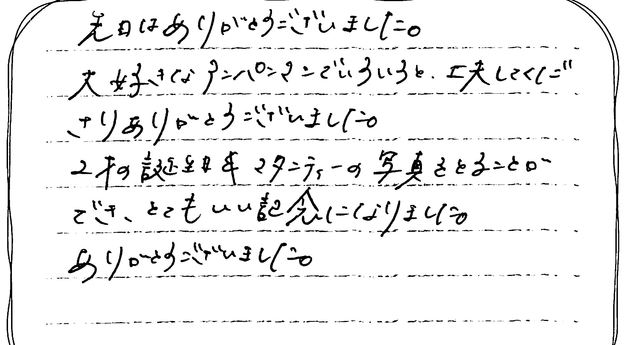 先日はありがとうございました。
大好きなアンパンマンでいろいろと、工夫してくだ
さりありがとうございました。
2才の誕生日とマタニティーの写真をとることが
でき、とてもいい記念になりました。
ありがとうございました。